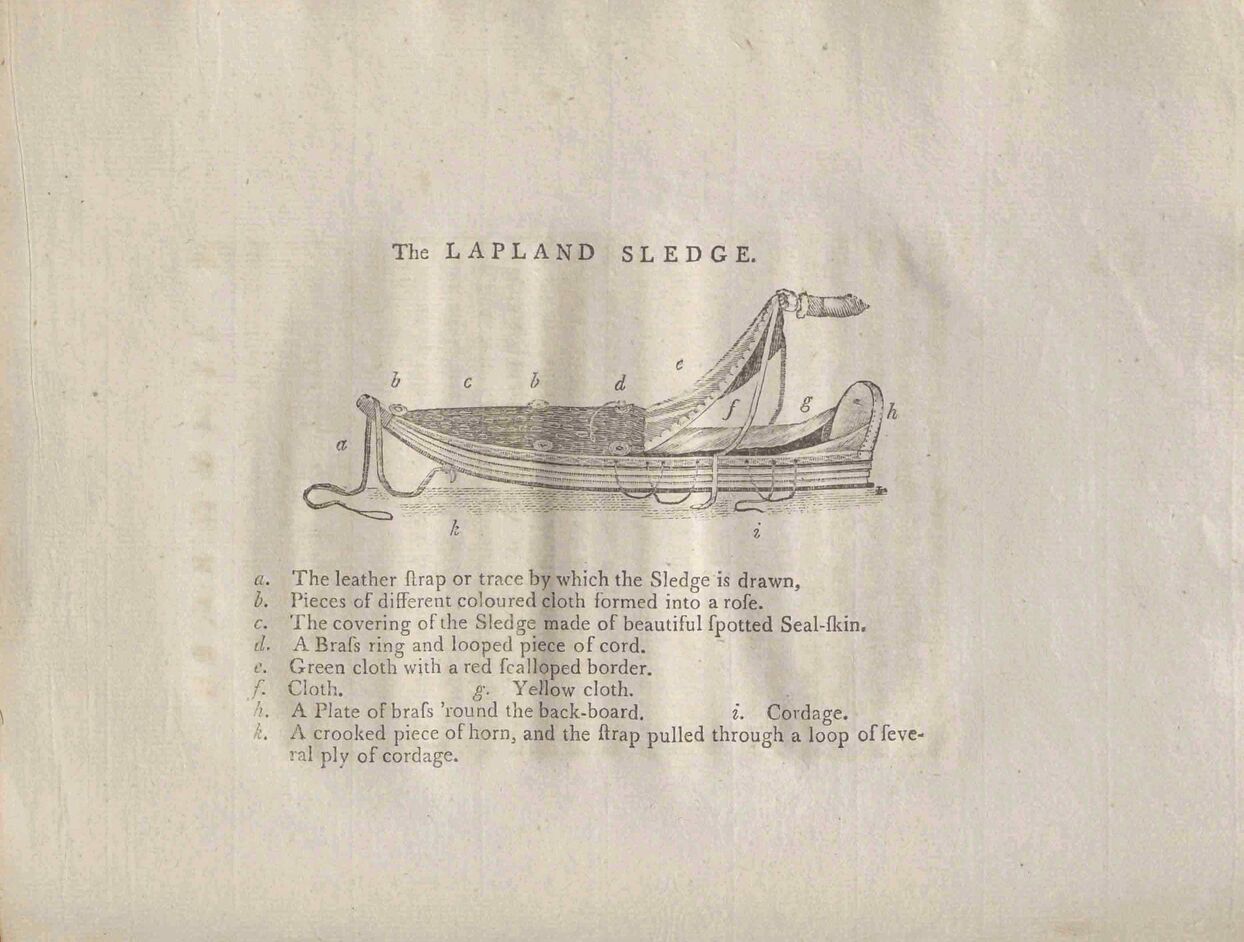 The LAPLAND SLEDGE.
b c b d e
f g h
a
k i
a. The leather ſtrap or trace by which the Sledge is drawn,
b. Pieces of different coloured cloth formed into a roſe.
c. The covering of the Sledge made of beautiful ſpotted Seal-ſkin.
d. A Braſs ring and looped piece of cord.
e. Green cloth with a red ſcalloped border.
f. Cloth. g. Yellow cloth.
h. A Plate of braſs 'round the back-board. i. Cordage.
k. A crooked piece of horn, and the ſtrap pulled through a loop of ſeve-
ral ply of cordage.